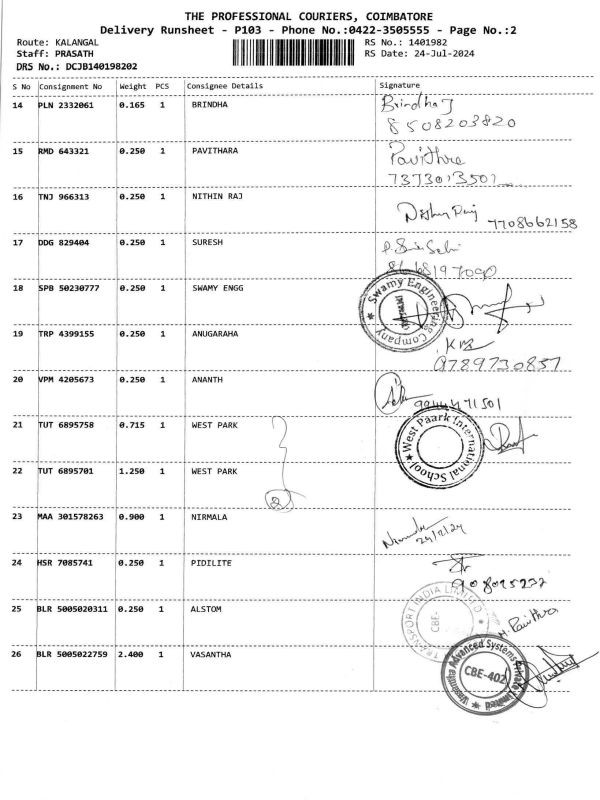 THE PROFESSIONAL COURIERS, COIMBATORE
Delivery Runsheet - P103 - Phone No.:0422-3505555 - Page No.:2
Route: KALANGAL RS No.: 1401982
Staff: PRASATH RS Date: 24-Jul-2024
DRS No.: DCJB140198202
S No Consignment No Weight PCS Consignee Details Signature
14 PLN 2332061 0.165 1 BRINDHA Brindha J
8508203820
15 RMD 643321 0.250 1 PAVITHARA Pavithra
7373013501
16 TNJ 966313 0.250 1 NITHIN RAJ
7708662158
17 DDG 829404 0.250 1 SURESH
18 SPB 50230777 0.250 1 SWAMY ENGG Swamy Engineering Company
19 TRP 4399155 0.250 1 ANUGARAHA
9789730857
20 VPM 4205673 0.250 1 ANANTH
9944471501
21 TUT 6895758 0.715 1 WEST PARK West Paark International School
22 TUT 6895701 1.250 1 WEST PARK
2
23 MAA 301578263 0.900 1 NIRMALA
24 HSR 7085741 0.250 1 PIDILITE
25 BLR 5005020311 0.250 1 ALSTOM TRANSPORT INDIA LIMITED
CBE-
Pavithra
26 BLR 5005022759 2.400 1 VASANTHA Vasantha Advanced Systems Private Limited
CBE-402